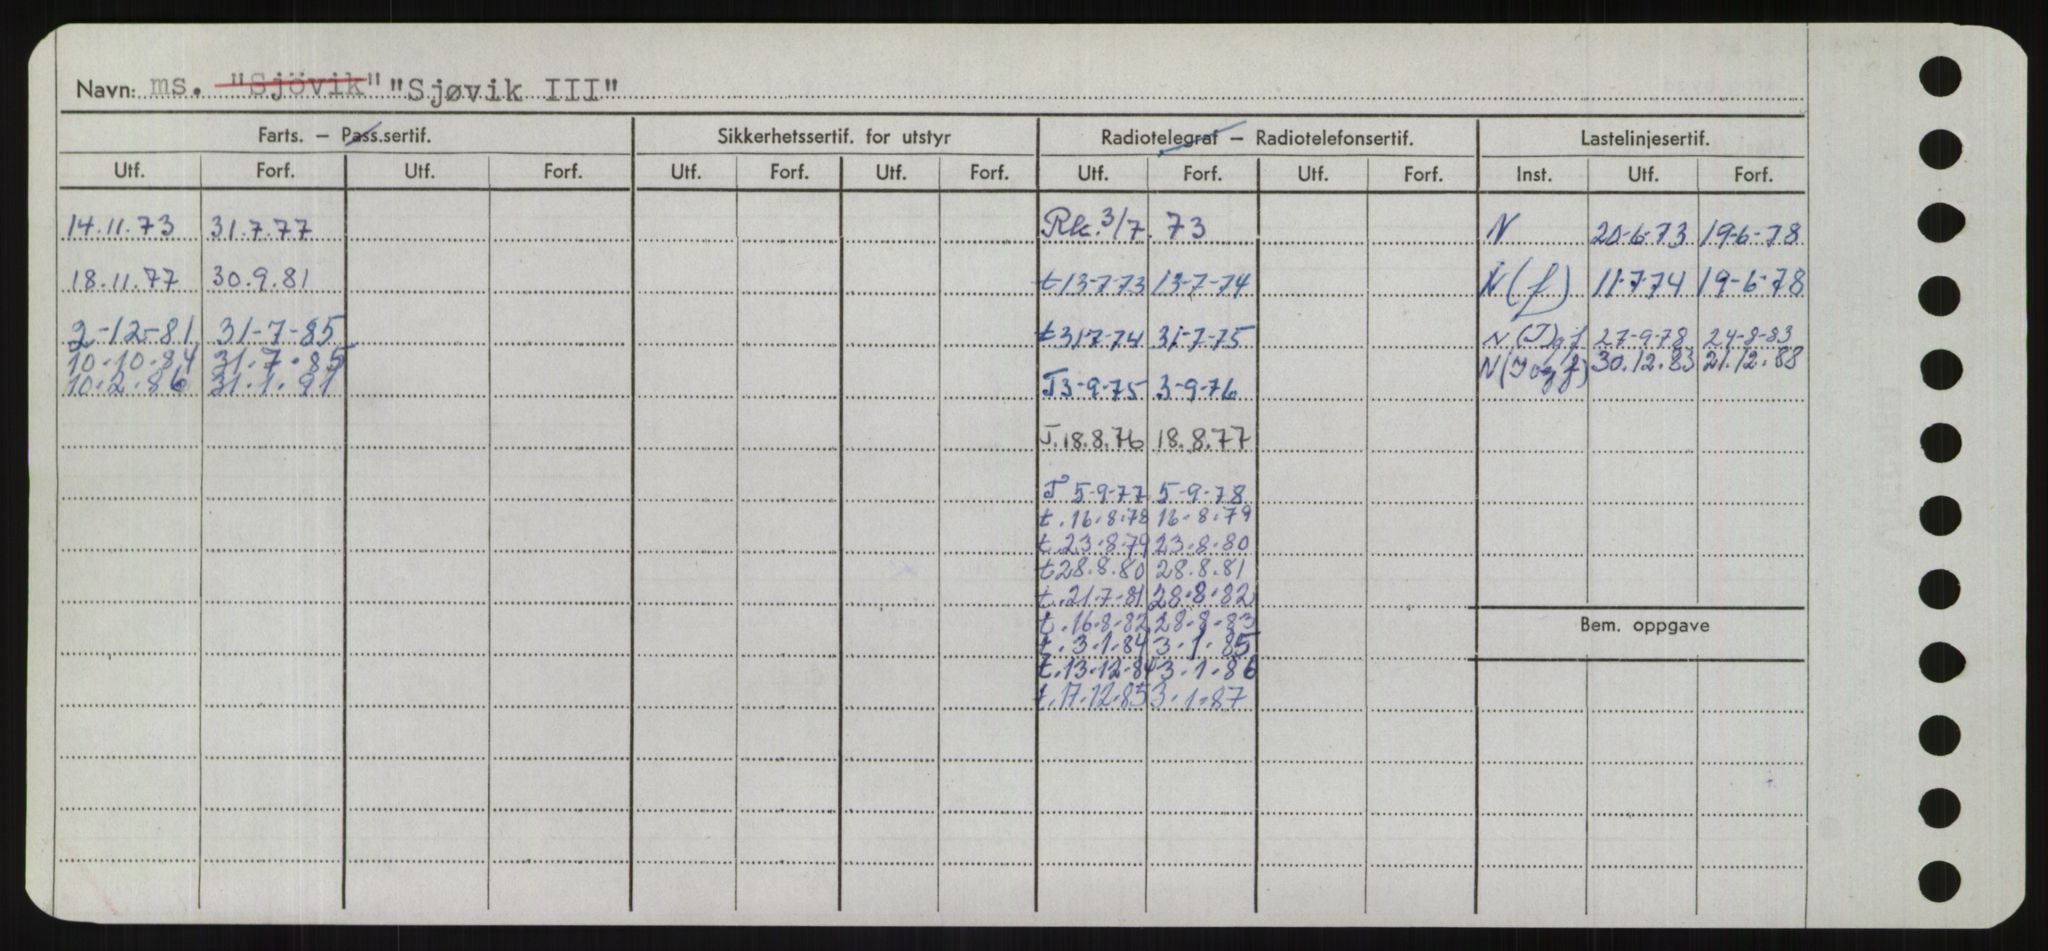 Navn: ms. "Sjövik" "Sjøvik III"
Farts. – Pass.sertif. Sikkerhetssertif. for utstyr Radiotelegraf – Radiotelefonsertif. Lastelinjesertif.
Utf. Forf. Utf. Forf. Utf. Forf. Utf. Forf. Utf. Forf. Utf. Forf. Inst. Utf. Forf.
14.11.73 31.7.77 Rk. 3/7. 73 N 20-6-73 19-6-78
18.11.77 30.9.81 t 13-7-73 13-7-74 N (f) 11-7-74 19-6-78
2-12-81 31-7-85 t 31-7-74 31-7-75 N (J) g f 27-9-78 24-8-83
10.10.84 31.7.85 N (J og f) 30.12.83 21.12.88
10.2.86 31.1.91 J 3-9-75 3-9-76
J. 18.8.76 18.8.77
J 5-9-77 5-9-78
t. 16.8.78 16.8.79
t. 23.8.79 23.8.80
t 28.8.80 28.8.81
t. 21.7.81 28.8.82
t. 16.8.82 28.8.83
Bem. oppgave
t. 3.1.84 3.1.85
t. 13.12.84 3.1.86
t. 17.12.85 3.1.87